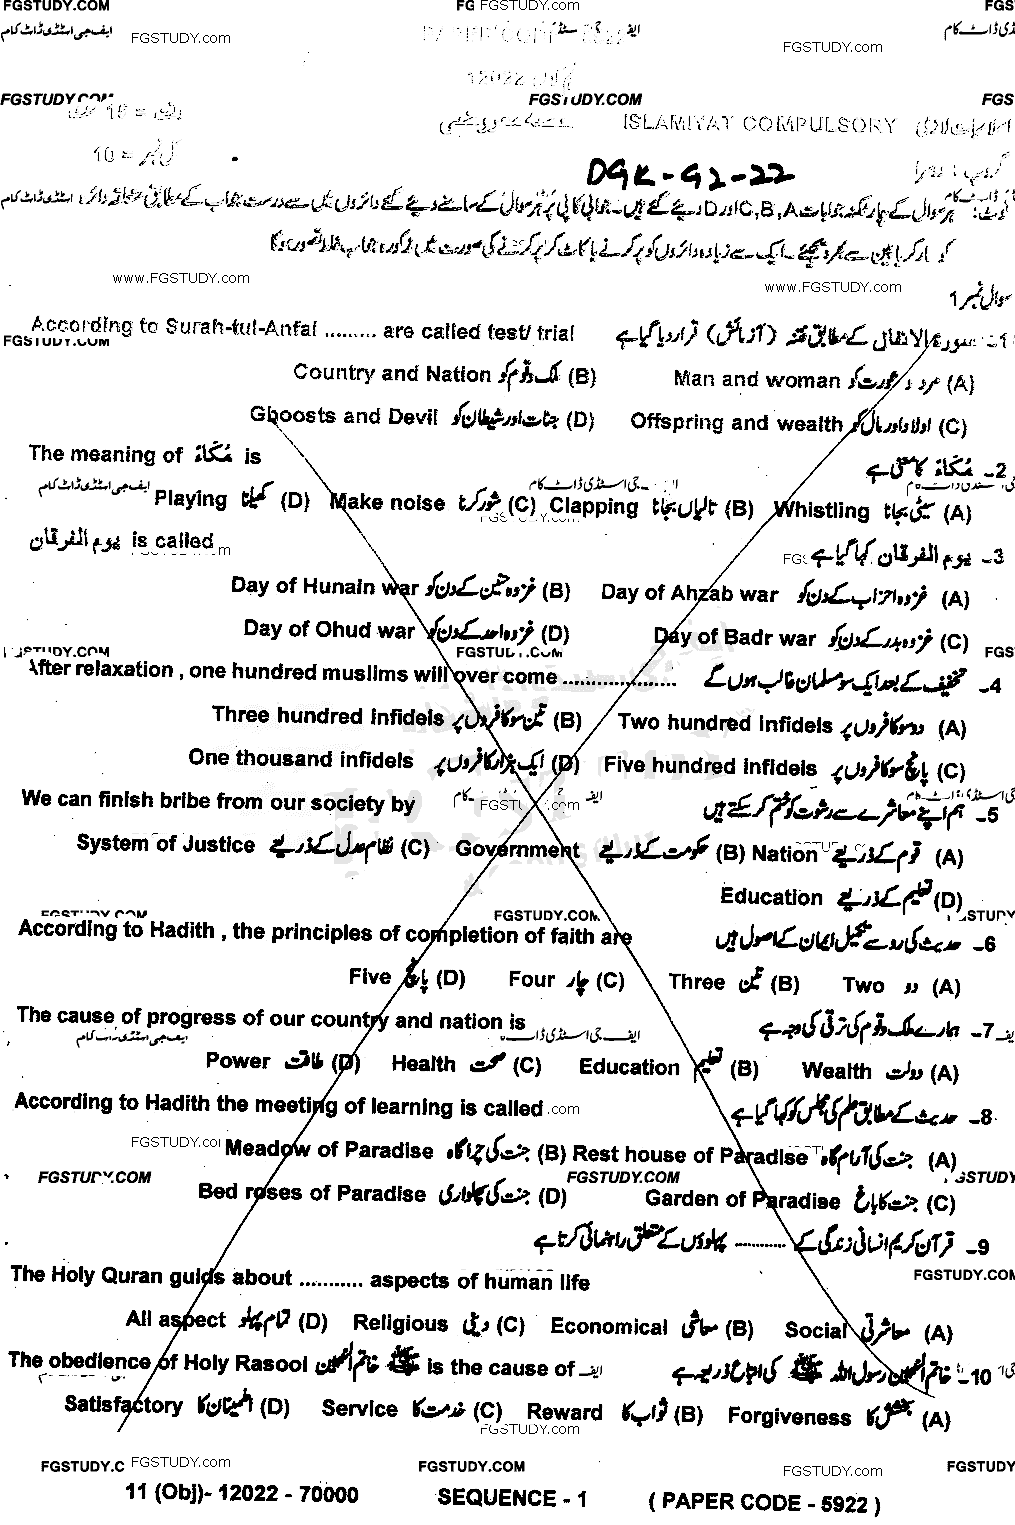 FGSTUDY.COM FG FGS
ایف جی اسٹڈی ڈاٹ کام FGSTUDY.com FGSTUDY.com
12022
FGSTUDY.COM FGSTUDY.COM FGS
ISLAMIYAT COMPULSORY
کل نمبر = 10
DGK-G2-22
نوٹ: ہر سوال کے چار ممکنہ جوابات A,B,C اور D دیئے گئے ہیں۔ جوابی کاپی پر ہر سوال کے سامنے دیئے گئے دائروں میں سے درست جواب کے مطابق متعلقہ دائرہ
کو مارکر یا پین سے بھر دیجئے۔ ایک سے زیادہ دائروں کو پر کرنے یا کاٹ کر پر کرنے کی صورت میں مذکورہ جواب غلط تصور ہوگا
www.FGSTUDY.COM www.FGSTUDY.COM
سوال نمبر 1
1۔ سورۃ الانفال کے مطابق فتنہ (آزمائش) قرار دیا گیا ہے According to Surah-tul-Anfal ......... are called test/ trial
FGSTUDY.COM
(A) مرد و عورت کو Man and woman (B) ملک و قوم کو Country and Nation
(C) اولاد اور مال کو Offspring and wealth (D) جنات اور شیطان کو Ghoosts and Devil
2۔ مُكَآءً کا معنی ہے The meaning of مُكَآءً is
(A) سیٹی بجانا Whistling (B) تالیاں بجانا Clapping (C) شور کرنا Make noise (D) کھیلنا Playing
3۔ یوم الفرقان کہا گیا ہے یوم الفرقان is called
(A) غزوہ احزاب کے دن کو Day of Ahzab war (B) غزوہ حنین کے دن کو Day of Hunain war
(C) غزوہ بدر کے دن کو Day of Badr war (D) غزوہ احد کے دن کو Day of Ohud war
FGSTUDY.COM FGSTUDY.COM FGS
4۔ تخفیف کے بعد ایک سو مسلمان غالب ہوں گے After relaxation , one hundred muslims will over come ....................
(A) دو سو کافروں پر Two hundred infidels (B) تین سو کافروں پر Three hundred infidels
(C) پانچ سو کافروں پر Five hundred infidels (D) ایک ہزار کافروں پر One thousand infidels
5۔ ہم اپنے معاشرے سے رشوت کو ختم کر سکتے ہیں We can finish bribe from our society by
(A) قوم کے ذریعے Nation (B) حکومت کے ذریعے Government (C) نظام عدل کے ذریعے System of Justice
(D) تعلیم کے ذریعے Education
FGSTUDY.COM FGSTUDY.COM
6۔ حدیث کی رو سے تکمیل ایمان کے اصول ہیں According to Hadith , the principles of completion of faith are
(A) دو Two (B) تین Three (C) چار Four (D) پانچ Five
7۔ ہمارے ملک و قوم کی ترقی کی وجہ ہے The cause of progress of our country and nation is
(A) دولت Wealth (B) تعلیم Education (C) صحت Health (D) طاقت Power
8۔ حدیث کے مطابق علم کی مجلس کو کہا گیا ہے According to Hadith the meeting of learning is called
(A) جنت کی آرام گاہ Rest house of Paradise (B) جنت کی چراگاہ Meadow of Paradise
FGSTUDY.COM FGSTUDY.COM
(C) جنت کا باغ Garden of Paradise (D) جنت کی پھلواری Bed roses of Paradise
9۔ قرآن کریم انسانی زندگی کے ........... پہلوؤں کے متعلق راہنمائی کرتا ہے
The Holy Quran guids about ........... aspects of human life FGSTUDY.COM
(A) معاشرتی Social (B) معاشی Economical (C) دینی Religious (D) تمام پہلو All aspect
10۔ خاتم النبیین رسول اللہ ﷺ کی اتباع ذریعہ ہے The obedience of Holy Rasool خاتم النبیین ﷺ is the cause of
(A) بخشش کا Forgiveness (B) ثواب کا Reward (C) خدمت کا Service (D) اطمینان کا Satisfactory
FGSTUDY.com
FGSTUDY.C FGSTUDY.com FGSTUDY.COM FGSTUDY.com FGSTUDY
11 (Obj)- 12022 - 70000 SEQUENCE - 1 ( PAPER CODE - 5922 )